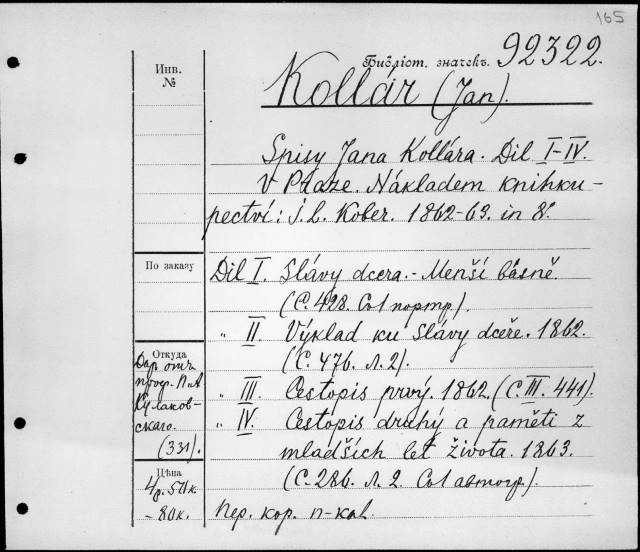 165
Библіот. значекъ. 92322.
Инв.
№
Kollár (Jan).
Spisy Jana Kollára. Dil I-IV.
V Praze. Nákladem knihku-
pectví: i. L. Kober. 1862-63. in 8.
По заказу
Dil I. Slávy dcera. - Menší básně.
(С. 428. Со 1 портр).
" II. Výklad ku Slávy dceře. 1862.
(С. 476. л. 2).
Откуда
Дар отъ
проф. П. А
Кулаков-
скаго.
(331).
" III. Cestopis prvý. 1862. (С. III. 441).
" IV. Cestopis druhý a paměti z
mladších let života. 1863.
(С. 286. л. 2. Со 1 автогр).
Цѣна
4 р. 50 к.
- 80 к.
Пер. кор. п-кол.